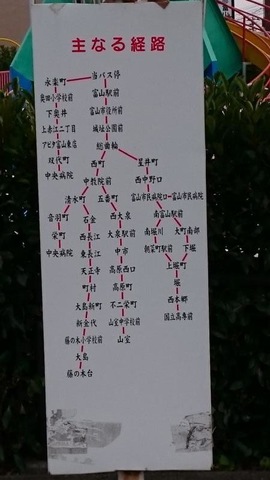 主なる経路
永楽町
当バス停
奥田小学校前
富山駅前
下奥井
富山市役所前
上赤江二丁目
城址公園前
アピタ富山東店
総曲輪
双代町
西町
星井町
中央病院
中教院前
西中野口
清水町
五番町
富山市民病院口
富山市民病院
音羽町
石金
西大泉
南富山駅前
栄町
西長江
大泉駅前
南堀川
大町南部
中央病院
東長江
中市
朝菜町駅前
下堀
天正寺
高原西口
上堀町
町村
高原町
堀
大島新町
不二栄町
西本郷
新金代
山室中学校前
国立高専前
藤の木小学校前
山室
大島
藤の木台